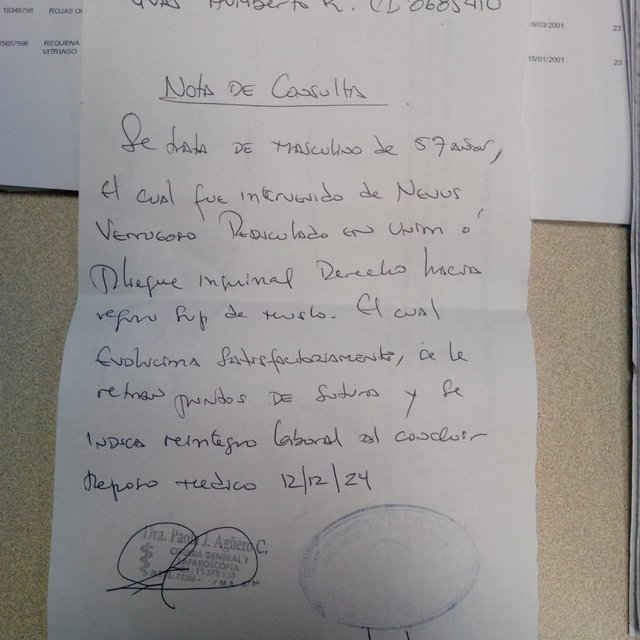 15349798 ROJAS
15657996 REQUENA
VITRIAGO
Humberto R. CI 8685410
9/03/2001 23
15/01/2001 23
Nota de Consulta
Se trata de masculino de 57 años,
el cual fue intervenido de Nevus
Verrugoso Pediculado en unión o
Pliegue inguinal Derecho hacia
region Sup de muslo. El cual
Evoluciona Satisfactoriamente, se le
retiran puntos de Sutura y se
indica reintegro laboral al concluir
Reposo medico 12/12/24
Dra. Paola J. Agüero C.
CIRUGIA GENERAL Y
LAPAROSCOPIA